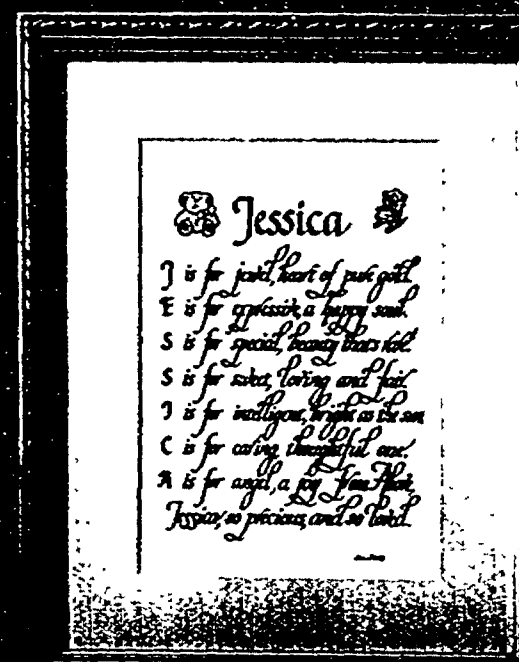 Jessica
J is for jewel, heart of pure gold.
E is for expressive, a happy soul.
S is for special, beauty that's
S is for sweet, loving and fair.
I is for intelligent, bright as the sun,
C is for caring, thoughtful one.
A is for angel, a joy from Above,
Jessica, so precious, and so loved.